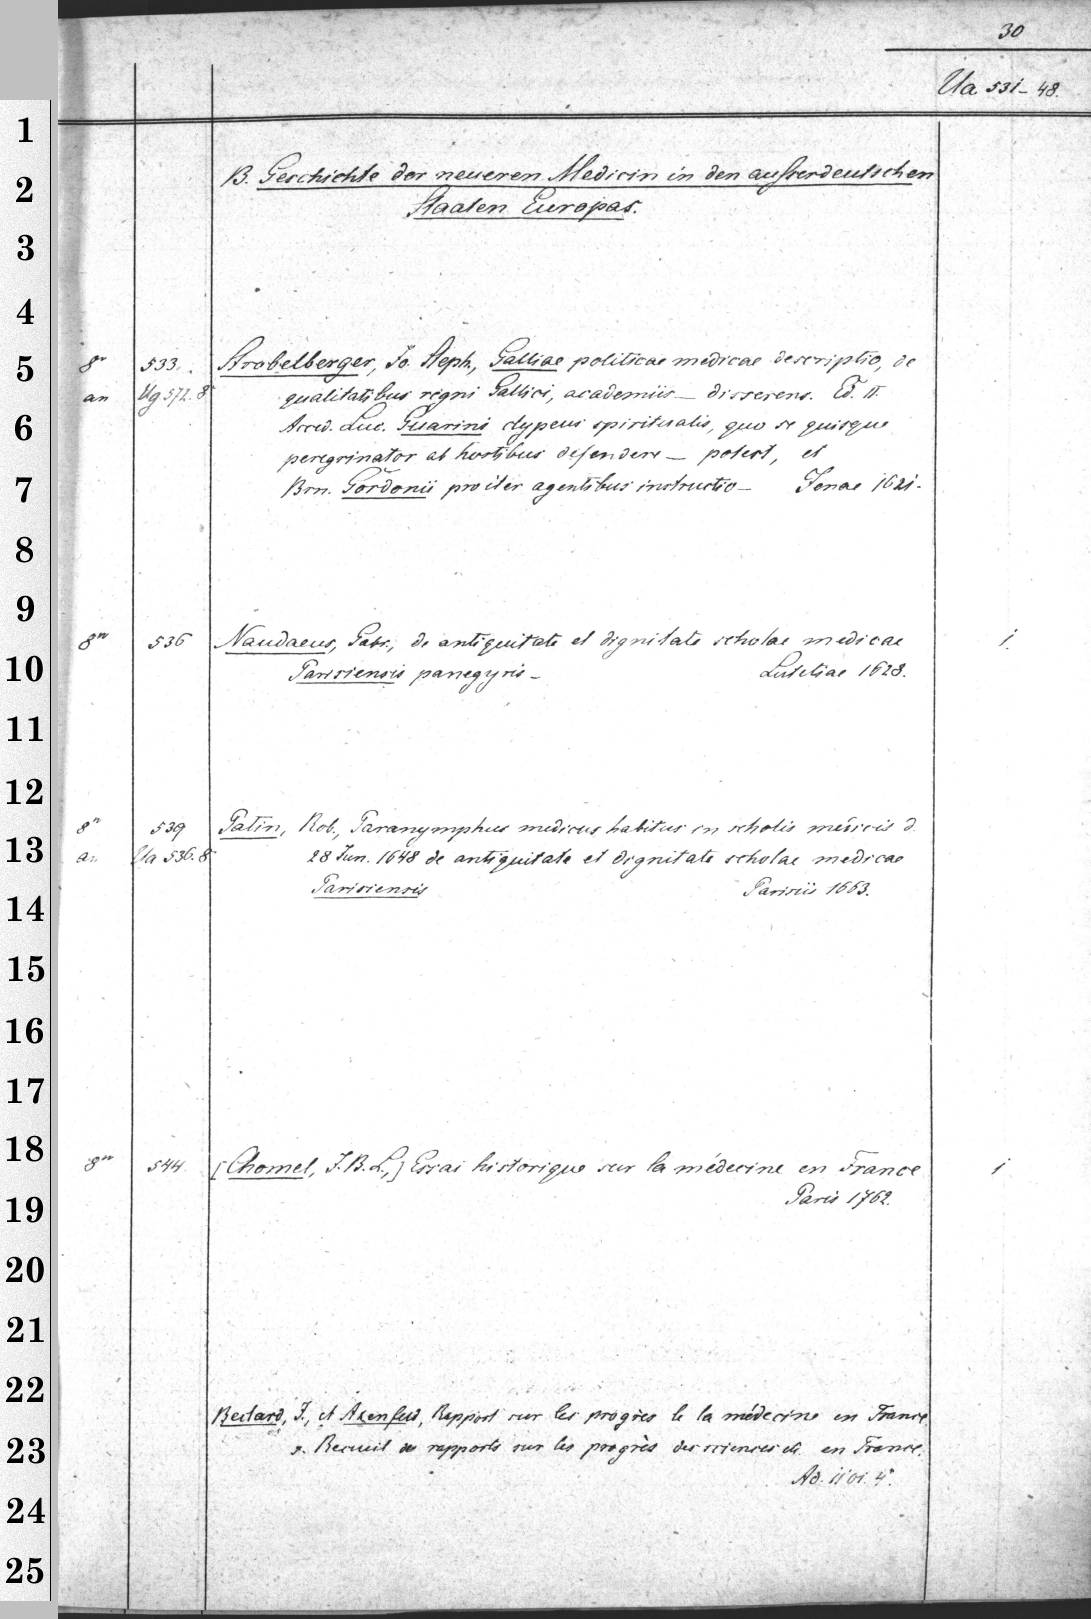 30
Ua 531-48.
B. Geschichte der neueren Medicin in den ausserdeutschen
Staaten Europas.
8° 533. Strobelberger, Jo. Steph., Galliae politicae medicae descriptio, de
an Ug 572. 8° qualitatibus regni Gallici, academiis — disserens. Ed. II.
Acced. Luc. Guarini clypeus spiritualis, quo se quisque
peregrinator ab hostibus defendere — potest, et
Brn. Gordonii pro iter agentibus instructio — Jenae 1621.
8° 536 Naudaeus, Gabr., de antiquitate et dignitate scholae medicae 1.
Parisiensis panegyris — Lutetiae 1628.
8° 539 Patin, Rob., Paranymphus medicus habitus in scholis medicis d.
an Ua 536. 8° 28 Jun. 1648 de antiquitate et dignitate scholae medicae
Parisiensis Parisiis 1663.
8° 544. [Chomel, J. B. L.,] Essai historique sur la médecine en France 1
Paris 1762.
Beclard, J., et Axenfeld, Rapport sur les progrès de la médecine en France.
s. Recueil de rapports sur les progrès des sciences etc. en France.
Ad. 4°.
1
2
3
4
5
6
7
8
9
10
11
12
13
14
15
16
17
18
19
20
21
22
23
24
25